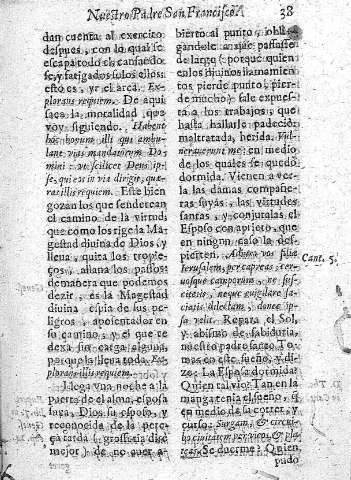 Nuestro Padre San Francisco. 38
dan cuenta al exercito
despues, con lo qual se
escapa todo el cansacio:
se, y fatigados solos ellos:
esto es, yr el arca. Ex-
plorans requiem. De aqui
saca la moralidad, que
voy siguiendo. Habent
hoc bonum illi qui ambu-
lant vias mandatorum Do-
mini: vt scilicet Deus ip-
se, qui est in via dirigit, quæ-
rat illis requiem. Este bien
gozan los que senderean
el camino de la virtud,
que como los rige la Ma-
gestad diuina de Dios, y
llena, quita los tropie-
ços, allana los passos:
demanera que podemos
dezir, es la Magestad
diuina espia de sus pe-
ligros, apo sentador en
su camino, y el que te
dexa sin carga alguna,
porque la lleua toda. Ex-
plorans illis requiem.
Llega vna noche a la
puerta de el alma, esposa
suya, Dios su esposo, y
reconocida de la pere-
ça tarda (grosseria dixe
mejor) de no auer a-
bierto al punto, obli-
gandole a que passasse
de largo (porque quien
en los diuinos llamamiẽ-
tos pierde punto, pier-
de mucho) sale expues-
ta a los trabajos, que
hasta hallarle padeciò,
maltratada, herida. Vul-
nerauerunt me: en medio
de los quales se quedò
dormida. Vienen a ver-
la las damas compañe-
ras suyas, las virtudes
santas, y conjuralas el
Esposo con aprieto, que
en ningun caso la des-
pierten. Adiuro vos filiæ
Ierusalem, per capreas, cer-
uosque camporum, ne sus-
citetis, neque euigilare fa-
ciatis dilectam, donec ip-
sa velit. Repara el Sol,
y abismo de sabiduria,
nuestro padre santo To-
mas en este sueño, y di-
ze: La Esposa dormida?
Quien tal viò? Tan en la
manga tenia el sueño, q̃
en medio de su correr, y
curso: Surgam, & circui-
bo ciuitatem per vicos & pla-
teas: Se duerme? Quien
pudo
Cant. 5.